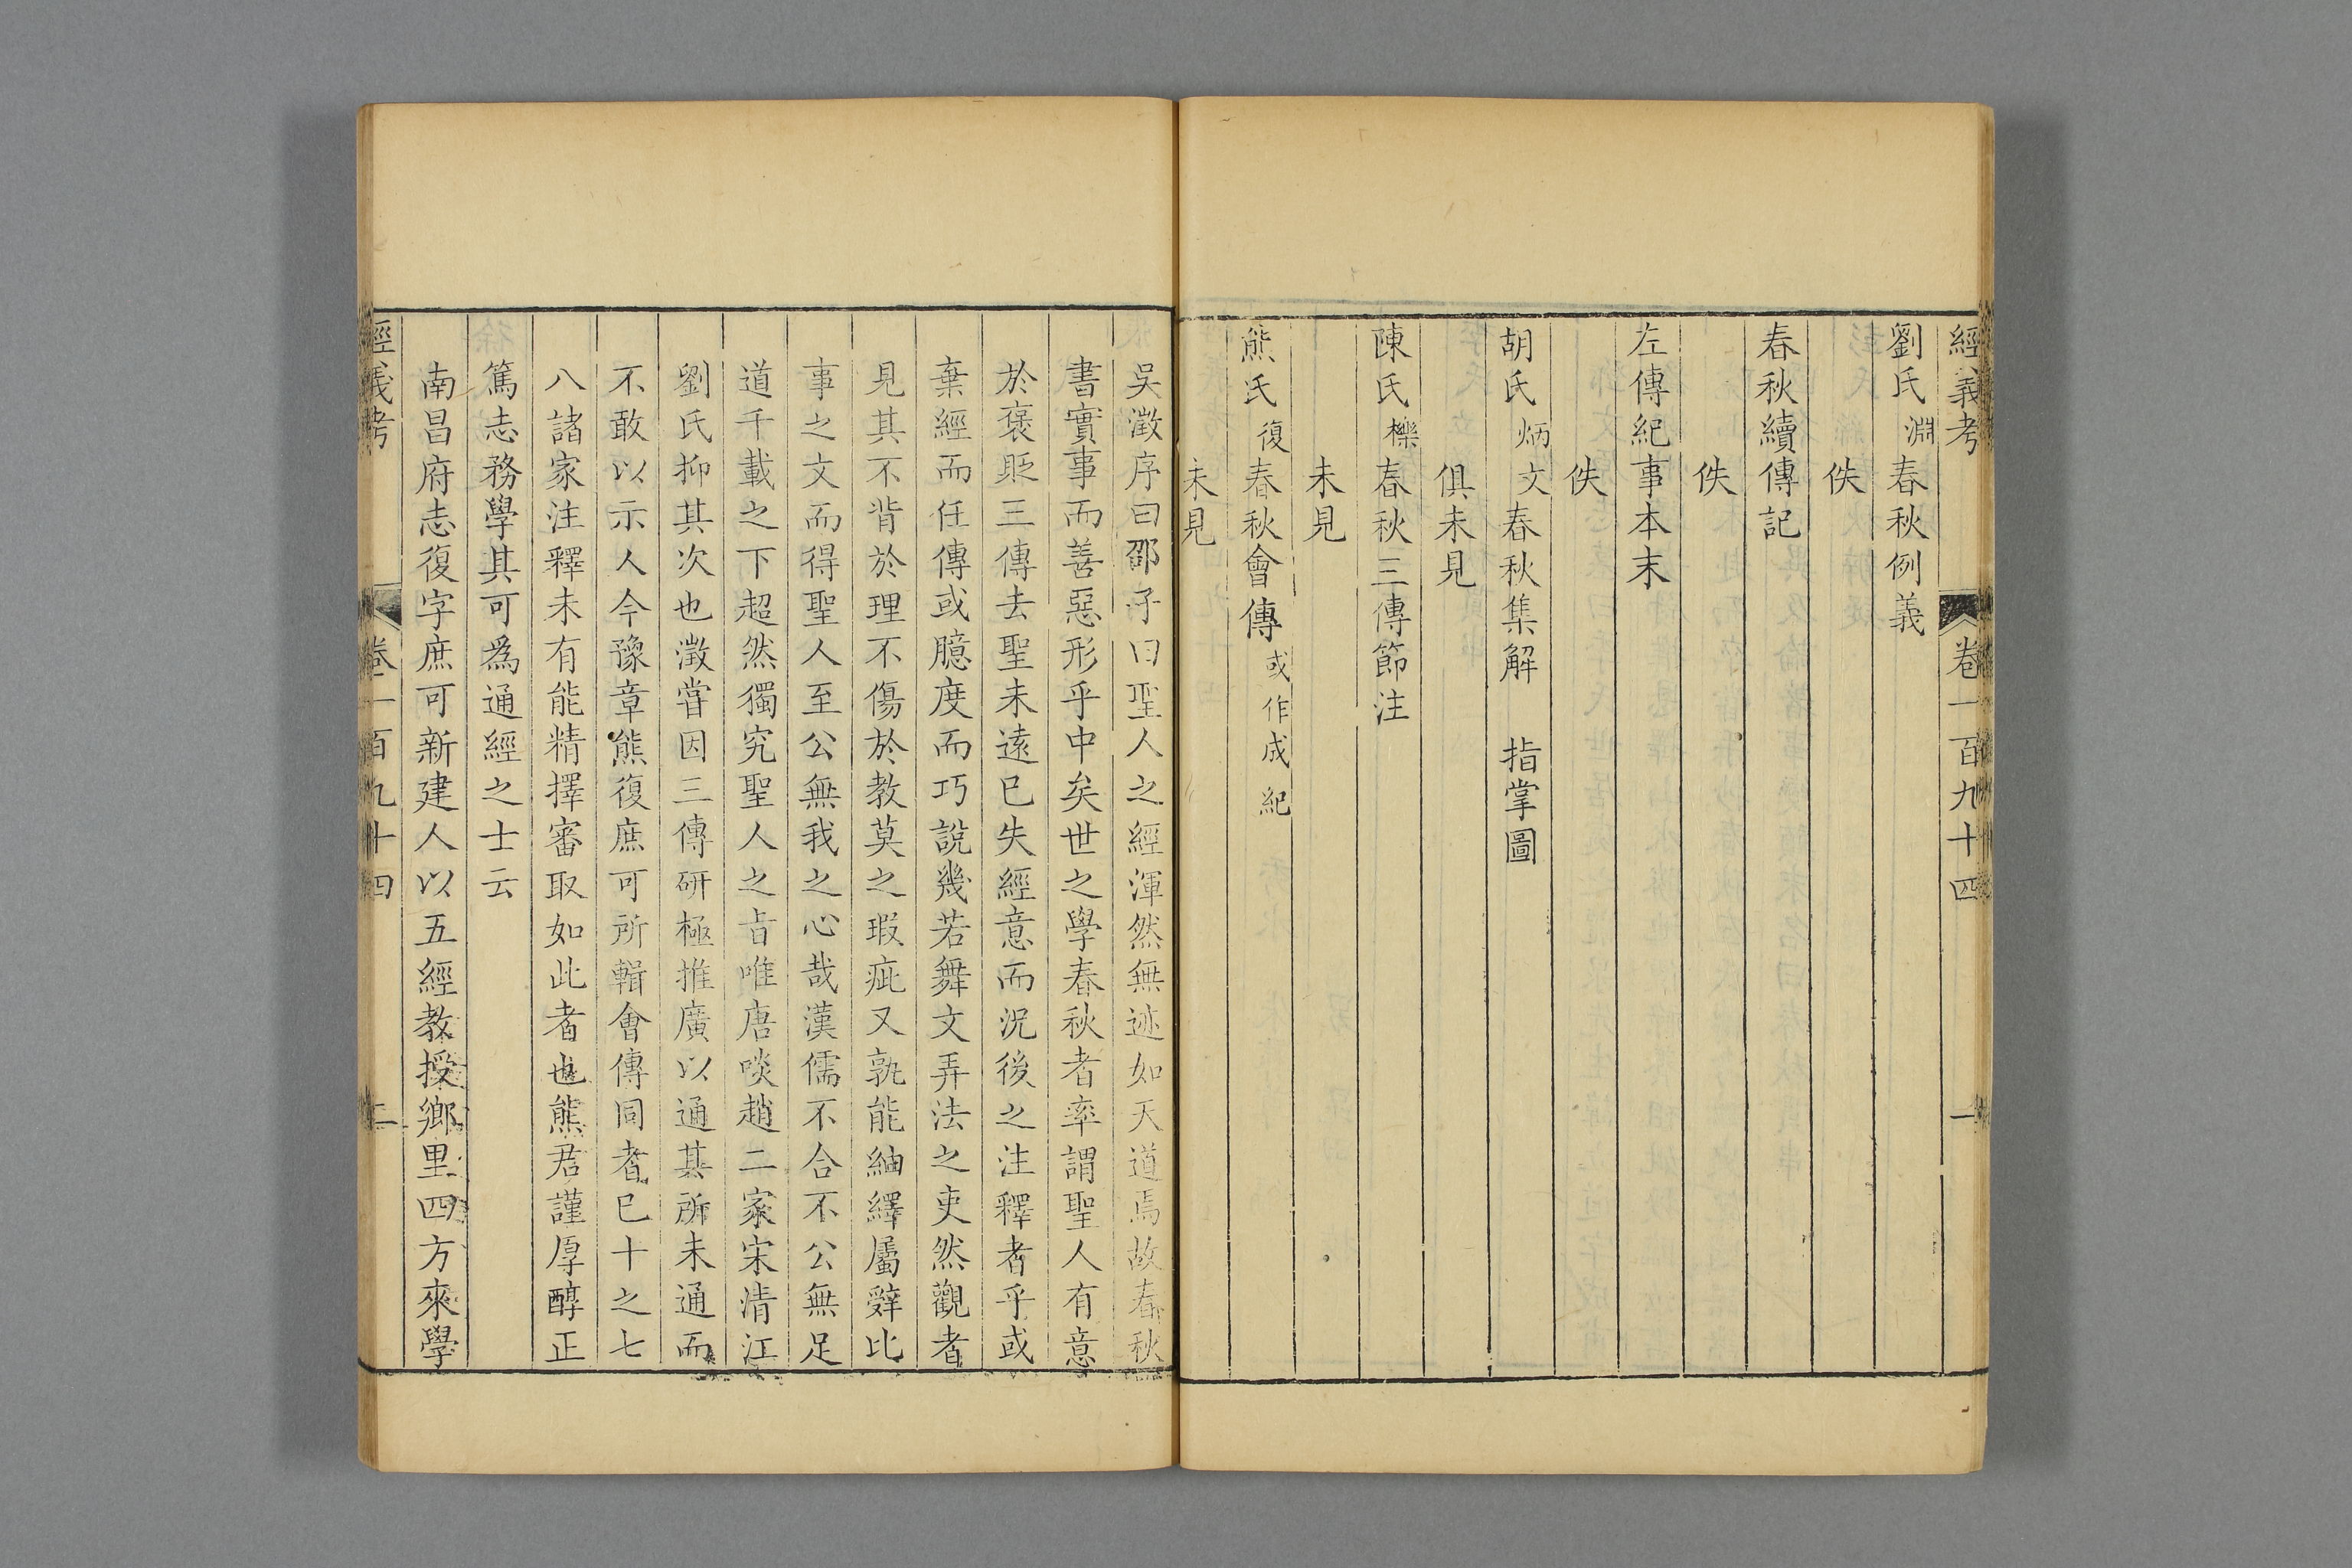 經義考 卷一百九十四 一
劉氏淵春秋例義
佚
春秋續傳記
佚
左傳紀事本末
佚
胡氏炳文春秋集解 指掌圖
俱未見
陳氏櫟春秋三傳節注
未見
熊氏復春秋會傳或作成紀
未見
吳澂序曰邵子曰聖人之經渾然無迹如天道焉故春秋
書實事而善惡形乎中矣世之學春秋者率謂聖人有意
於褒貶三傳去聖未遠已失經意而況後之注釋者乎或
棄經而任傳或臆度而巧說幾若舞文弄法之吏然觀者
見其不背於理不傷於教莫之瑕疵又孰能紬繹屬辭比
事之文而得聖人至公無我之心哉漢儒不合不公無足
道千載之下超然獨究聖人之旨唯唐啖趙二家宋清江
劉氏抑其次也澂嘗因三傳研極推廣以通其所未通而
不敢以示人今豫章熊復庶可所輯會傳同者已十之七
八諸家注釋未有能精擇審取如此者也熊君謹厚醇正
篤志務學其可爲通經之士云
南昌府志復字庶可新建人以五經教授鄉里四方來學
經義考 卷一百九十四 二